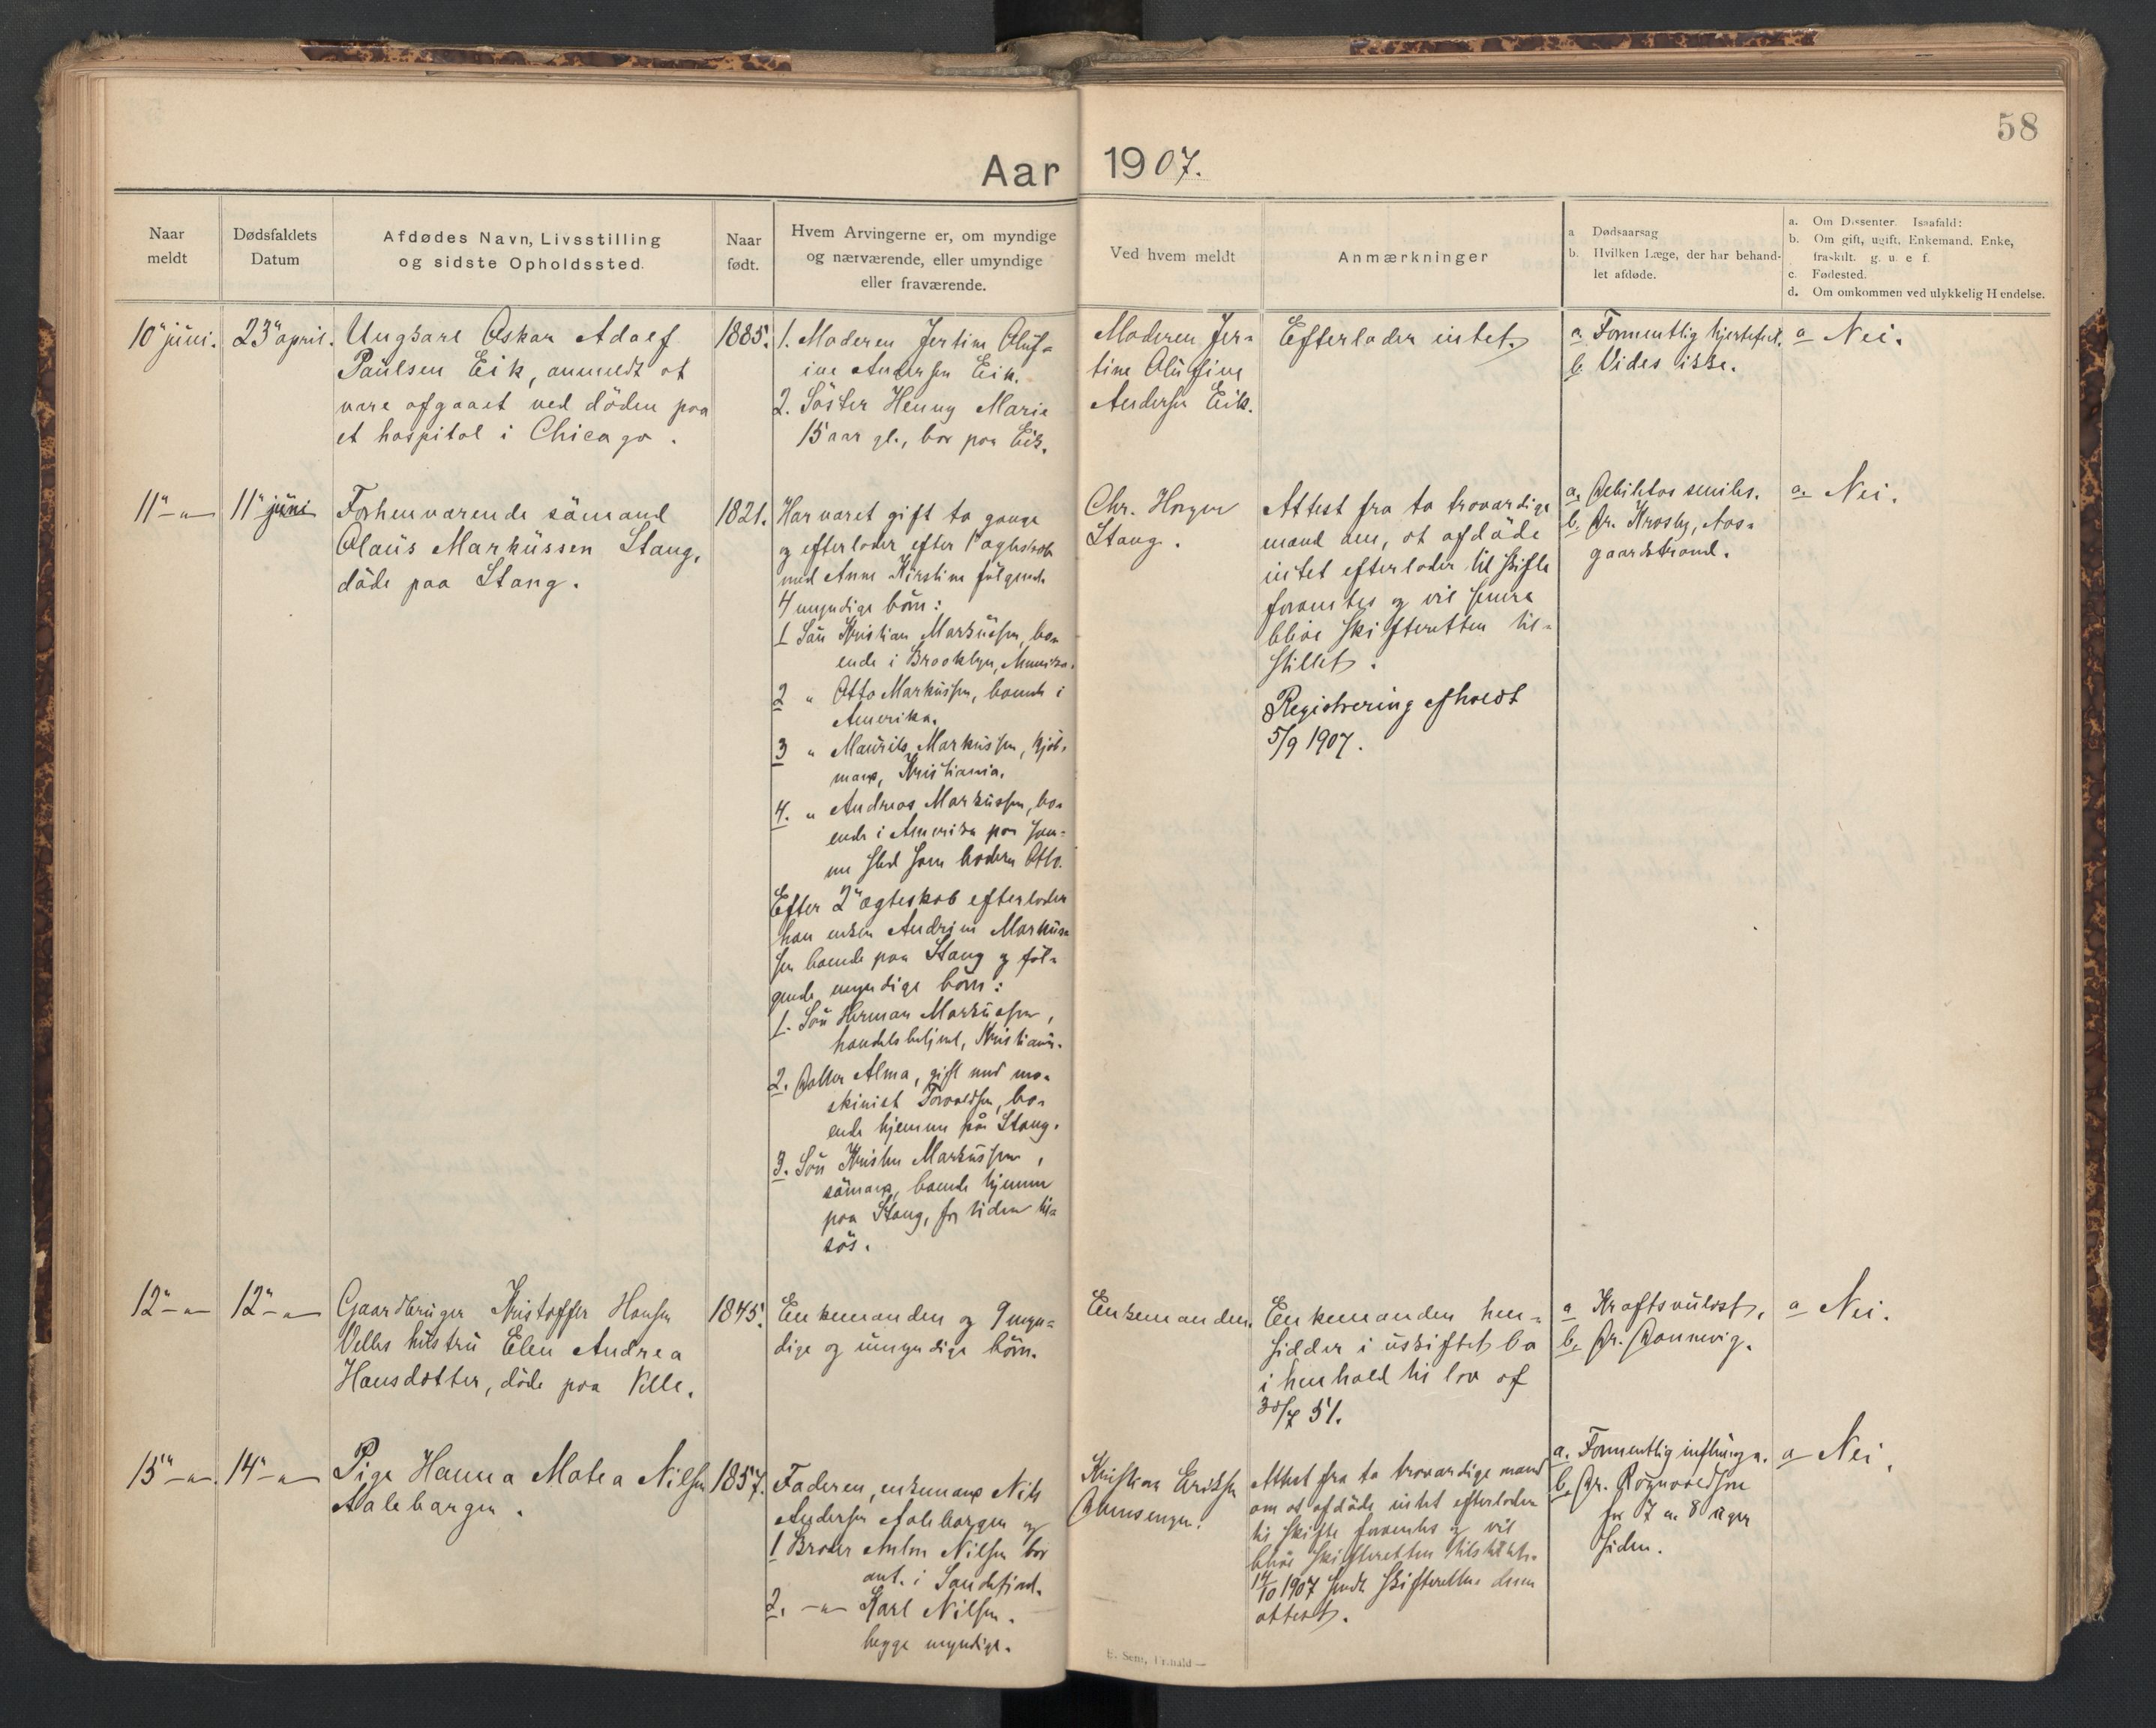 58
Aar 1907.
Naar meldt
Dødsfaldets Datum
Afdødes Navn, Livsstilling og sidste Opholdssted.
Naar født.
Hvem Arvingerne er, om myndige og nærværende, eller umyndige eller fraværende.
Ved hvem meldt
Anmærkninger
a Dødsaarsag
b. Hvilken Læge, der har behandlet afdøde.
a. Om Dissenter. Isaafald:
b. Om gift, ugift, Enkemand, Enke, fraskilt. g. u. e f.
c. Fødested.
d. Om omkommen ved ulykkelig Hendelse.
10" juni.
23" april.
Ungkarl Oskar Adolf
Paulsen Eik, anmeldt at
være afgaaet ved döden paa
et hospital i Chicago.
1885.
1. Moderen Jertine Oluf-
ine Andersen Eik.
2. Söster Henny Marie
15 aar gl., bor paa Eik.
Moderen Jer-
tine Olufine
Andersen Eik.
Efterlader intet.
a. Formentlig hjertefeil.
b. Vides ikke.
a Nei.
11" — " —
11" juni
Forhenværende sömand
Olaus Markussen Stang,
döde paa Stang.
1821.
Har været gift to gange
og efterlader efter 1" ægteskab
med Anne Kirstine fölgende
4 myndige börn:
1 Sön Kristian Markussen, bo-
ende i Brooklyn, Amerika.
2 " Otto Markussen, boende i
Amerika.
3 " Maurits Markussen, kjöb-
mand, Kristiania.
4. " Andreas Markussen, bo-
ende i Amerika paa sam-
me sted som broderen Otto.
Efter 2" ægteskab efterlader
han enken Andrine Markus-
sen boende paa Stang og föl-
gende myndige börn:
1. Sön Herman Markussen,
handelsbetjent, Kristiania.
2. Datter Alma, gift med ma-
skinist Torvaldsen, bo-
ende hjemme på Stang.
3. Sön Kristen Markussen,
sömand, boende hjemme
paa Stang, for tiden til-
sös.
Chr. Horgen
Stang.
Attest fra to troværdige
mænd om, at afdöde
intet efterlader til skifte
forventes og vil senere
blive skifteretten til-
stillet.
Registrering afholdt
5/9 1907.
a. Debilitas senilis.
b. Dr. Krosby, Aas-
gaardstrand.
a. Nei.
12" — " —
12" — " —
Gaardbruger Kristoffer Hansen
Velles hustru Elen Andrea
Hansdatter, döde paa Velle.
1845.
Enkemanden og 9 myn-
dige og umyndige börn.
Enkemanden.
Enkemanden hen-
sidder i uskiftet bo
i henhold til lov af
30/7 51.
a Kraftsvulst.
b. Dr. Dannevig.
a Nei.
15" — " —
14" — " —
Pige Hanna Matea Nilsen
Aalebargen.
1857.
Faderen, enkemand Nils
Andersen Aalebargen og
1 Broder Anton Nilsen bor
ant. i Sandefjord.
2. — " — Karl Nilsen.
begge myndige.
Kristian Eriksen
Attest fra to troværdige mænd
om at afdöde intet efterlader
til skifte forventes og vil
blive skifteretten tilstillet.
14/10 1907 sendt skifteretten denne
attest.
a. Formentlig influenza.
b. Dr. Rognvoldson
for 7 a 8 uger
siden.
a Nei.
E. Sem, Fr.hald —